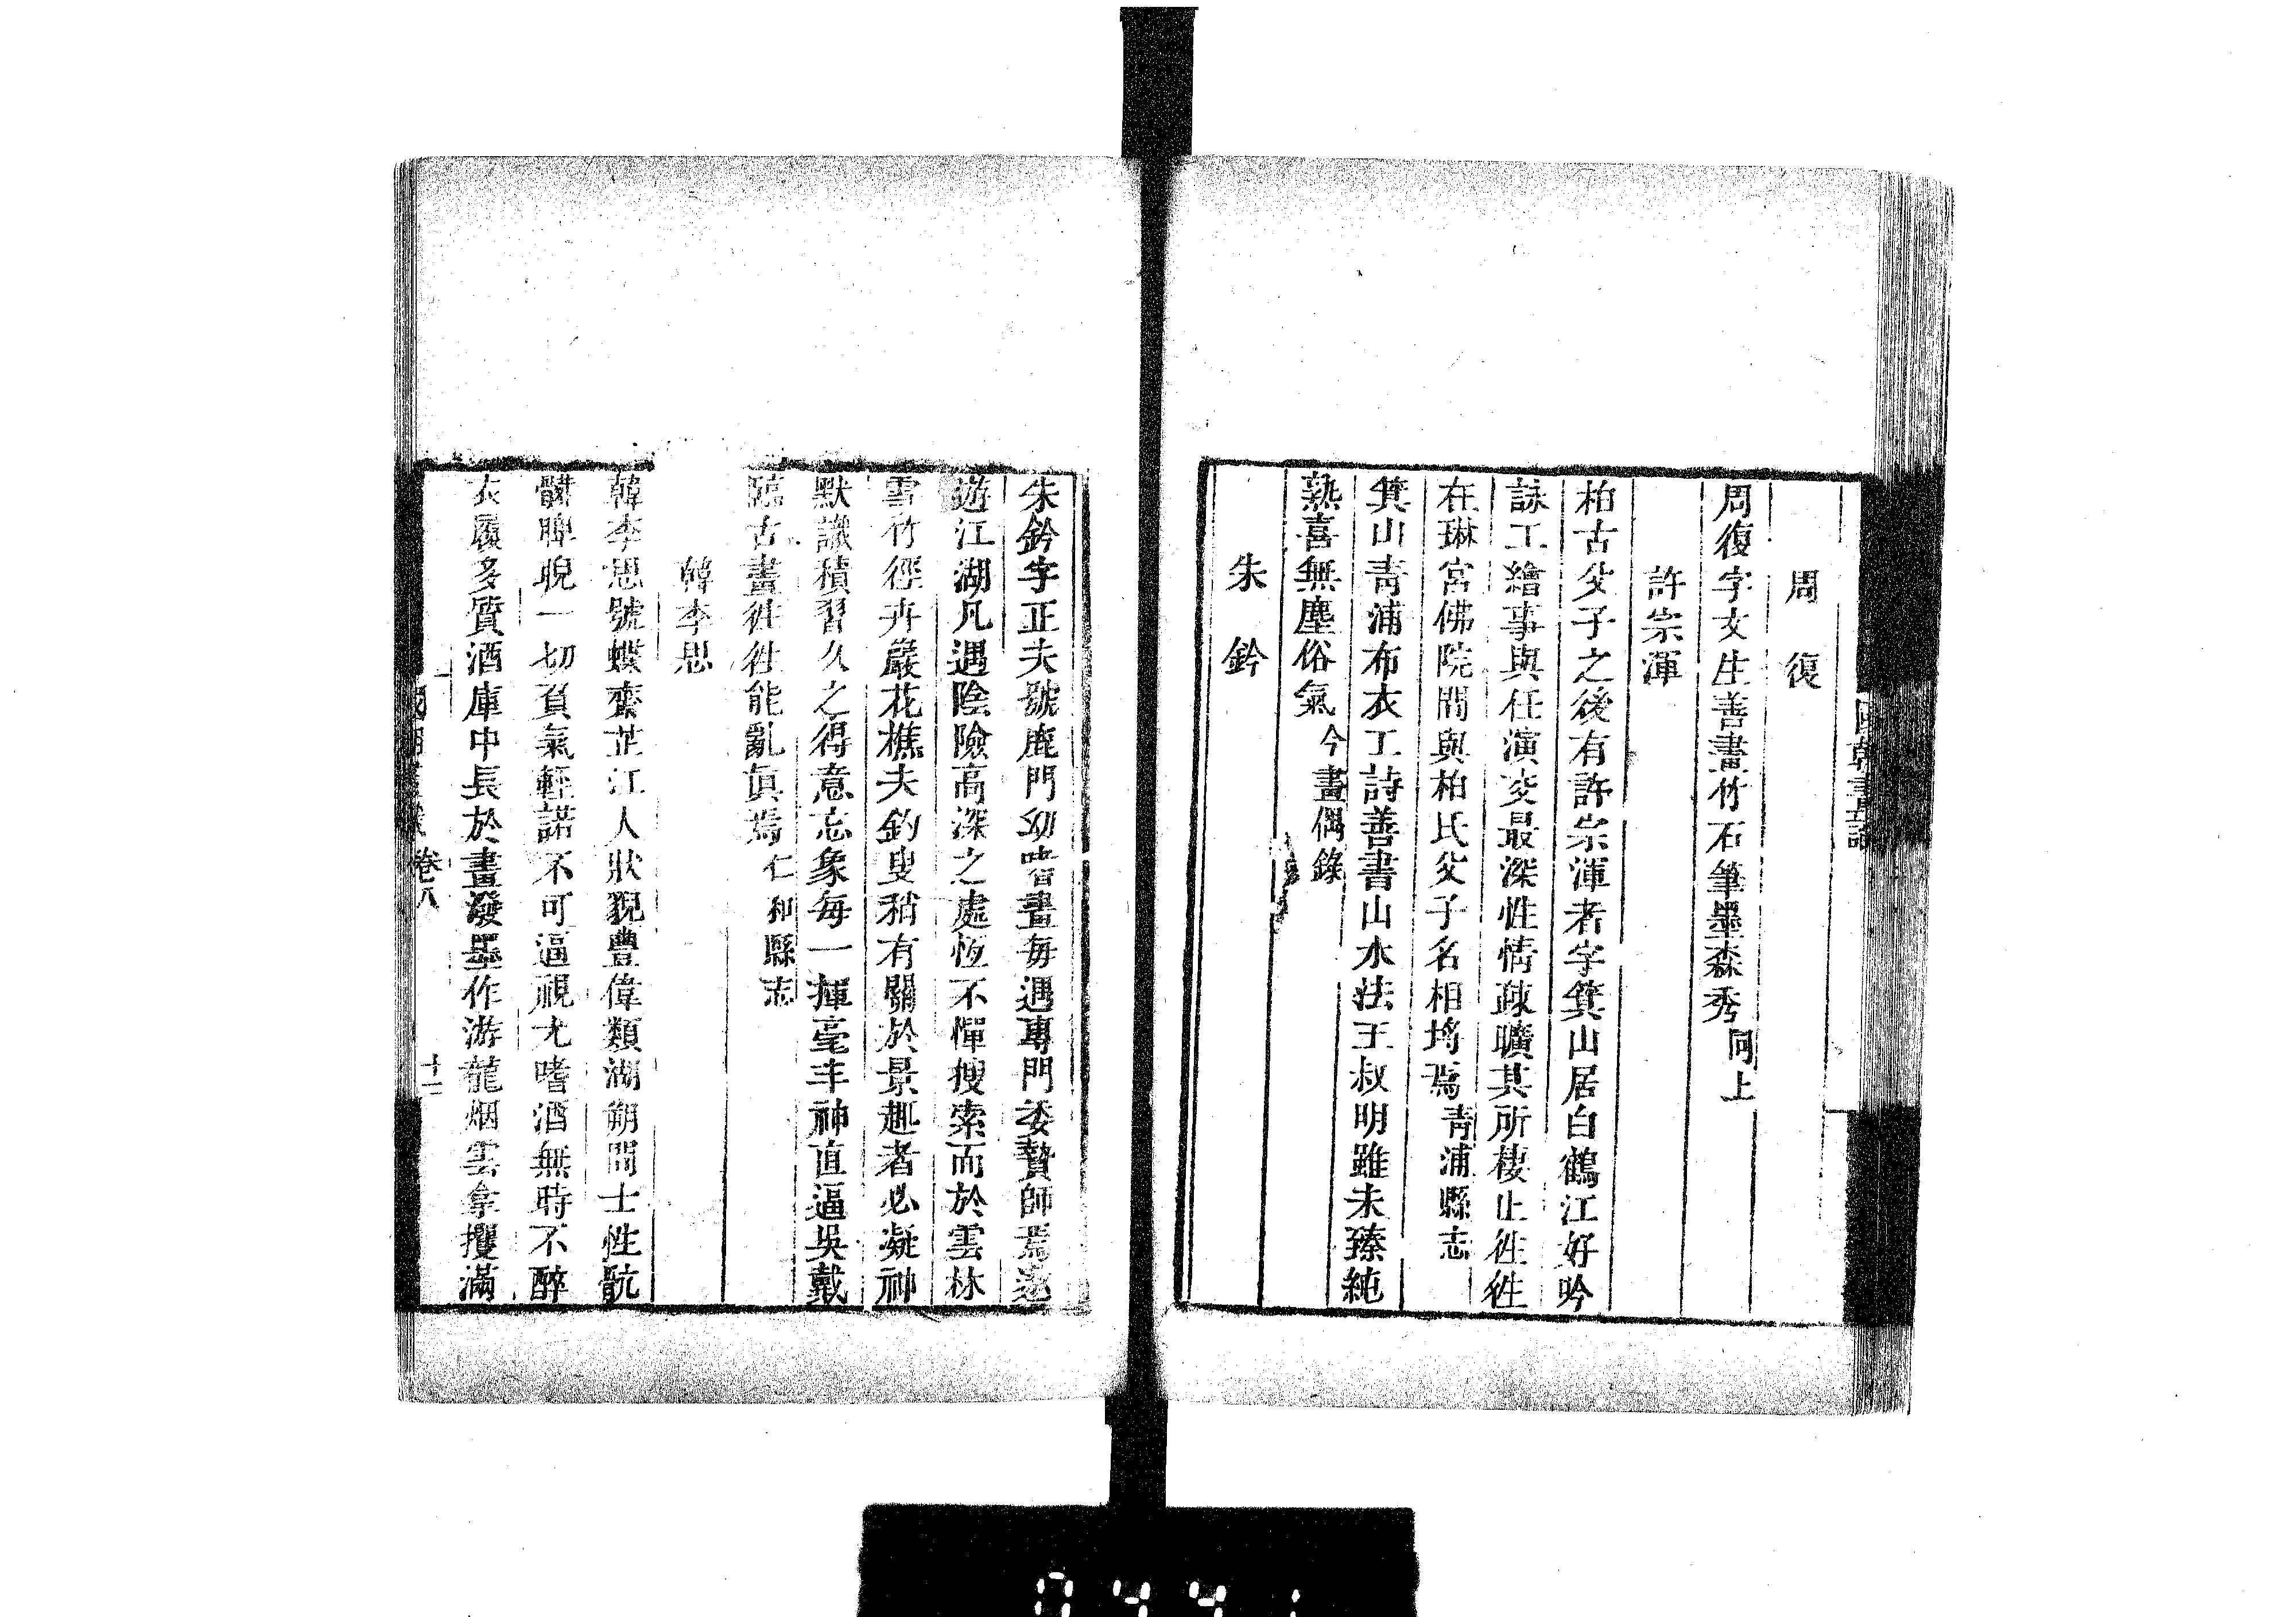 周復
周復字女生善畫竹石筆墨森秀同上
許宗渾
柏古父子之後有許宗渾者字箕山居白鶴江好吟
詠工繪事與任演交最深性情疎曠其所棲止徃徃
在琳宮佛院間與柏氏父子名相埒焉青浦縣志
箕山青浦布衣工詩善書山水法王叔明雖未臻純
熟喜無塵俗氣今畫偶錄
朱鈐
朱鈐字正夫號鹿門幼嗜畫每遇專門委贄師焉遨
遊江湖凡遇陰險高深之處恆不憚搜索而於雲林
雪竹徑卉巖花樵夫釣叟稍有關於景趣者必凝神
默識積習久之得意忘象每一揮毫丰神直逼吳戴
臨古畫徃徃能亂眞焉仁和縣志
韓李思
韓李思號蝶齋芷江人狀貌豊偉類湖朔間士性骯
髒睥睨一切負氣輕諾不可逼視尤嗜酒無時不醉
衣履多質酒庫中長於畫潑墨作游龍烟雲拿攫滿
卷八
十二